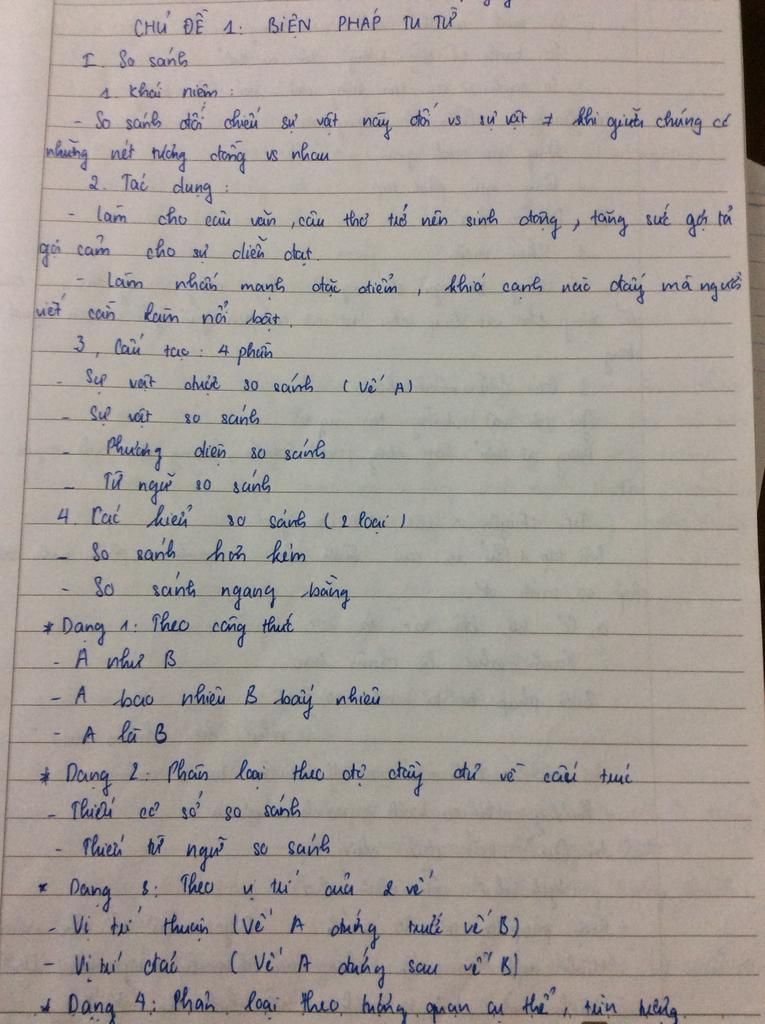 CHỦ ĐỀ 1: BIỆN PHÁP TU TỪ
I. So sánh
1. Khái niệm:
- So sánh đối chiếu sự vật này đối vs sự vật ≠ khi giữa chúng có
những nét tương đồng vs nhau
2. Tác dụng:
- Làm cho câu văn, câu thơ trở nên sinh động, tăng sức gợi tả
gợi cảm cho sự diễn đạt.
- Làm nhấn mạnh đặc điểm, khía cạnh nào đấy mà người
viết cần làm nổi bật.
3, Cấu tạo: 4 phần
- Sự vật được so sánh (Vế A)
- Sự vật so sánh
- Phương diện so sánh
- Từ ngữ so sánh
4. Các kiểu so sánh (2 loại)
- So sánh hơn kém
- So sánh ngang bằng
* Dạng 1: Theo công thức
- A như B
- A bao nhiêu B bấy nhiêu
- A là B
* Dạng 2: Phân loại theo độ đầy đủ về cấu trúc
- Thiếu cơ sở so sánh
- Thiếu từ ngữ so sánh
* Dạng 3: Theo vị trí của 2 vế
- Vị trí thuận (Vế A đứng trước vế B)
- Vị trí đảo (Vế A đứng sau vế B)
* Dạng 4: Phân loại theo tương quan cụ thể, trừu tượng